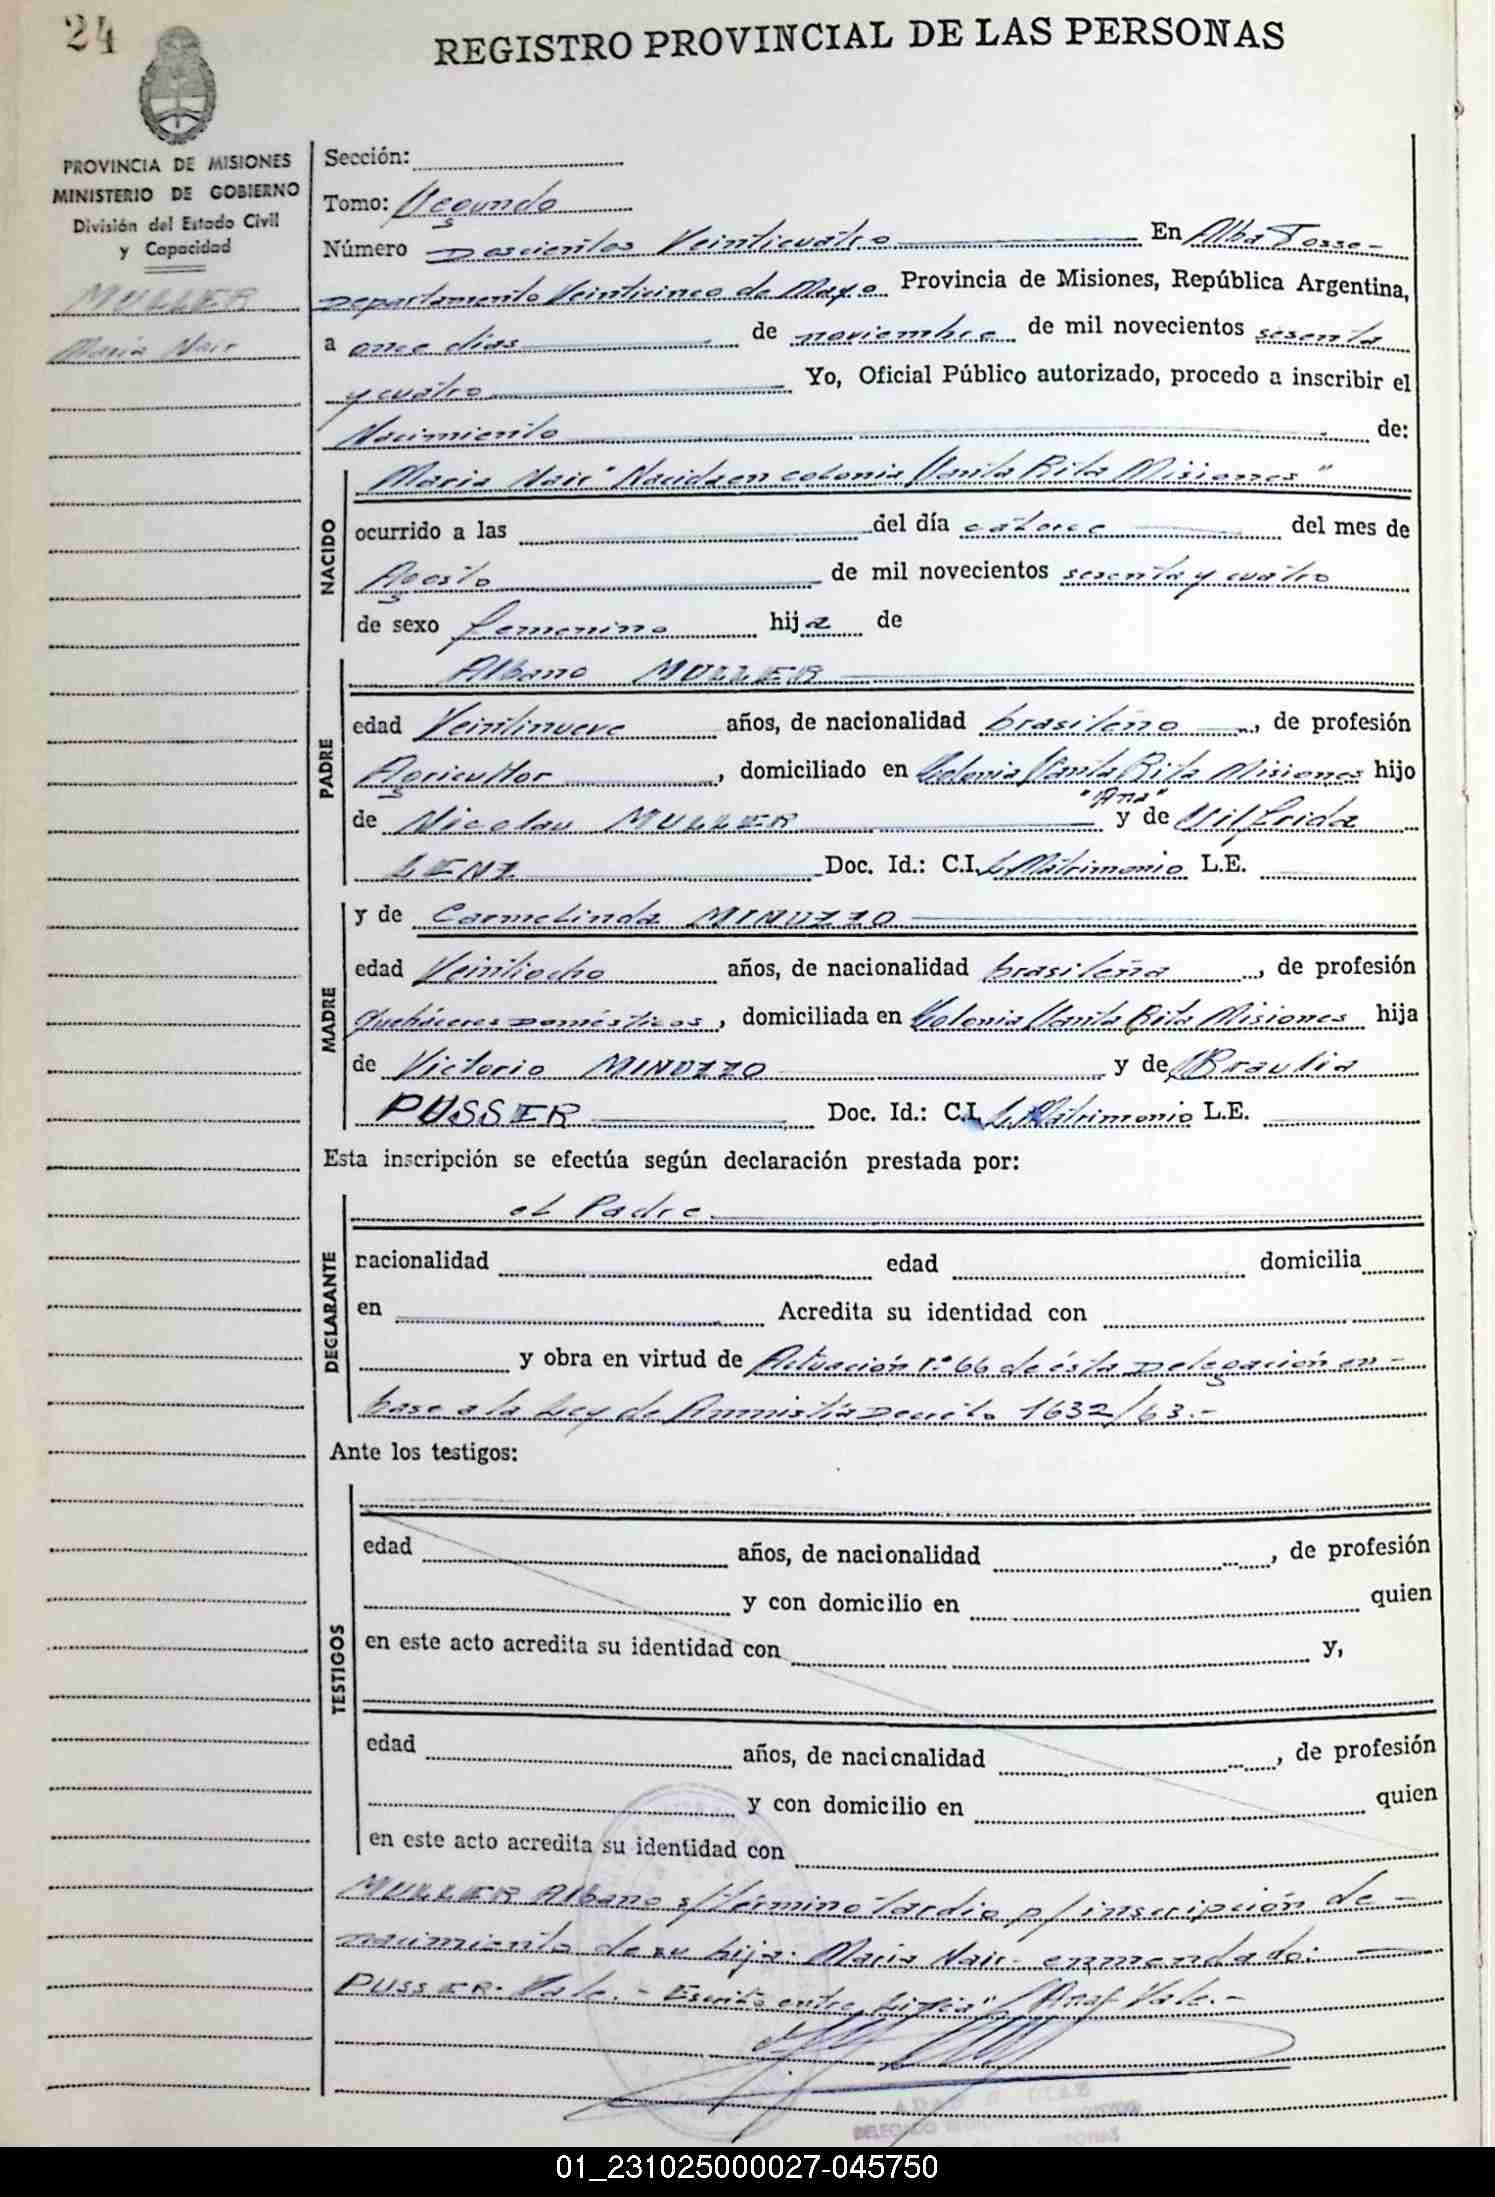 24
REGISTRO PROVINCIAL DE LAS PERSONAS
PROVINCIA DE MISIONES
MINISTERIO DE GOBIERNO
División del Estado Civil
y Capacidad
MULLER
Maria Nair
Sección:
Tomo: Segundo
Número Doscientos Veinticuatro En Alba Posse-
Departamento Veinticinco de Mayo Provincia de Misiones, República Argentina,
a once días de noviembre de mil novecientos sesenta
y cuatro Yo, Oficial Público autorizado, procedo a inscribir el
Nacimiento de:
NACIDO
Maria Nair "Nacida en colonia Santa Rita Misiones"
ocurrido a las del día catorce del mes de
Agosto de mil novecientos sesenta y cuatro
de sexo femenino hija de
PADRE
Albano MULLER
edad Veintinueve años, de nacionalidad brasileño, de profesión
Agricultor, domiciliado en Colonia Santa Rita Misiones hijo
"Ana"
de Nicolau MULLER y de Vilfrida
LENZ Doc. Id.: C.I. L. Matrimonio L.E.
MADRE
y de Carmelinda MINUZZO
edad Veintiocho años, de nacionalidad brasileña, de profesión
Quehaceres Domésticos, domiciliada en Colonia Santa Rita Misiones hija
de Victorio MINUZZO y de Braulia
PUSSER Doc. Id.: C.I. L. Matrimonio L.E.
Esta inscripción se efectúa según declaración prestada por:
DECLARANTE
el Padre
nacionalidad edad domicilia
en Acredita su identidad con
y obra en virtud de Actuación n° 66 de ésta Delegación en-
base a la Ley de Amnistía Decreto 1632/63.-
Ante los testigos:
TESTIGOS
edad años, de nacionalidad , de profesión
y con domicilio en quien
en este acto acredita su identidad con y,
edad años, de nacionalidad , de profesión
y con domicilio en quien
en este acto acredita su identidad con
MULLER Albano s/término tardío p/ inscripción de-
nacimiento de su hija: Maria Nair- enmendado:
PUSSER- Vale.- Escrito entre Linea "Ana" Vale.-
01_231025000027-045750